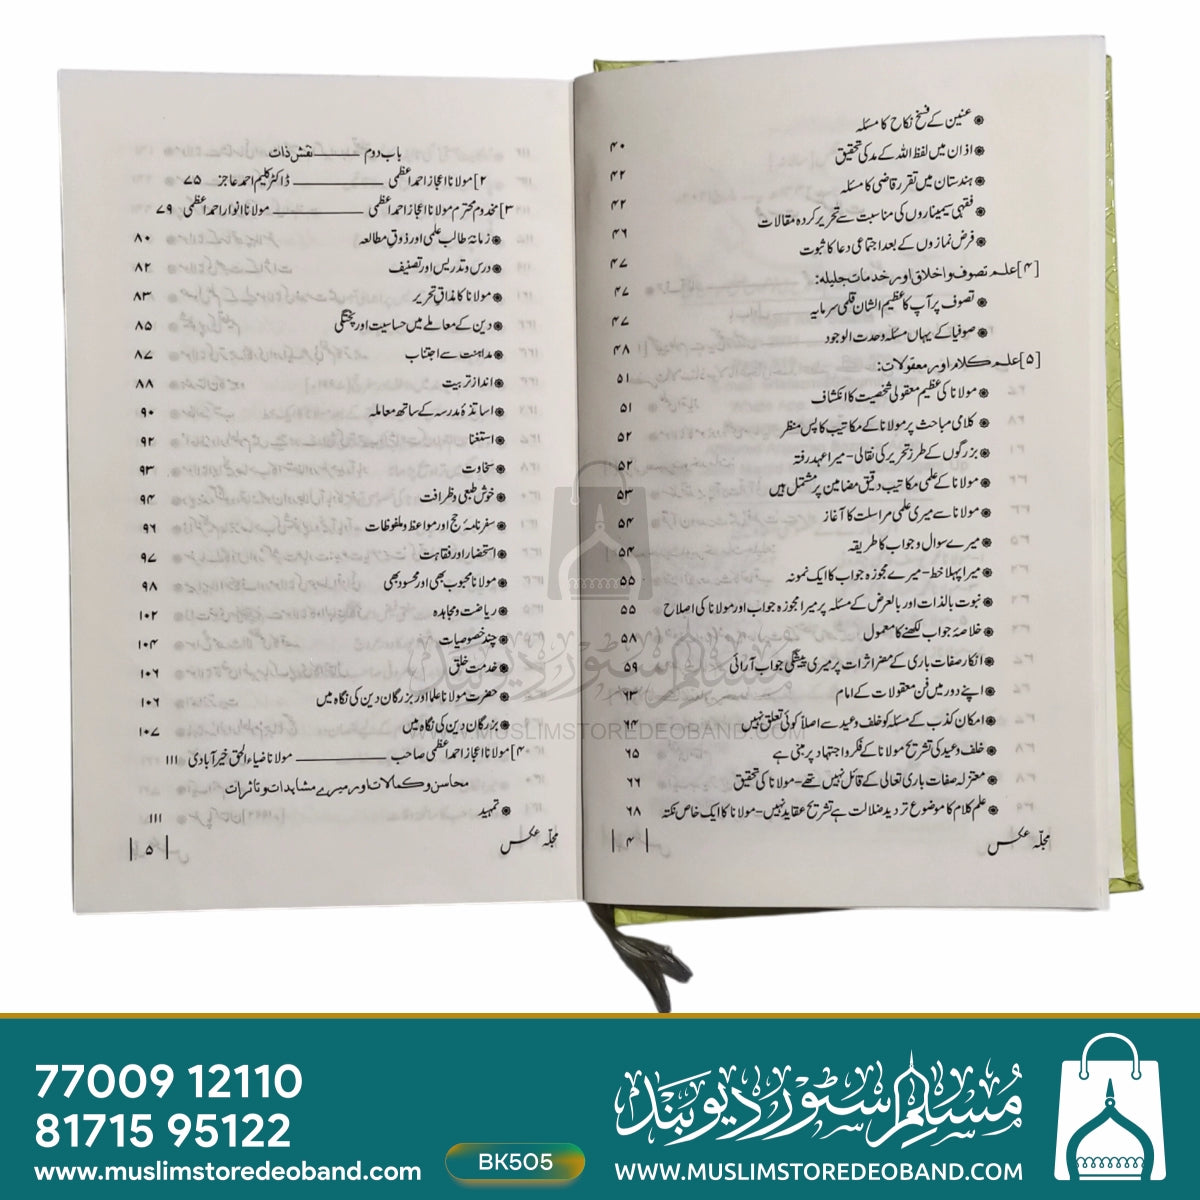 عنین کے فسخ نکاح کا مسئلہ ۴۰
اذان میں لفظ اللہ کے مد کی تحقیق ۴۲
ہندستان میں تقرر قاضی کا مسئلہ ۴۲
فقہی سیمیناروں کی مناسبت سے تحریر کردہ مقالات ۴۶
فرض نمازوں کے بعد اجتماعی دعا کا ثبوت ۴۷
[۴] علم تصوف و اخلاق اور خدمات جلیلہ: ۴۷
تصوف پر آپ کا عظیم الشان قلمی سرمایہ ۴۷
صوفیا کے یہاں مسئلہ وحدت الوجود ۴۸
[۵] علم کلام اور معقولات: ۵۱
مولانا کی عظیم معقولی شخصیت کا انکشاف ۵۱
کلامی مباحث پر مولانا کے مکاتیب کا پس منظر ۵۲
بزرگوں کے طرز تحریر کی نقالی - میرا عہد رفتہ ۵۲
مولانا کے علمی مکاتیب دقیق مضامین پر مشتمل ہیں ۵۳
مولانا سے میری علمی مراسلت کا آغاز ۵۴
میرے سوال و جواب کا طریقہ ۵۴
میرا پہلا خط - میرے مجوزہ جواب کا ایک نمونہ ۵۵
نبوت بالذات اور بالعرض کے مسئلہ پر میرا مجوزہ جواب اور مولانا کی اصلاح ۵۵
خلاصۂ جواب لکھنے کا معمول ۵۸
انکار صفات باری کے مضر اثرات پر میری پیشگی جواب آرائی ۵۹
اپنے دور میں فن معقولات کے امام ۶۳
امکان کذب کے مسئلہ کو خلف وعید سے اصلاً کوئی تعلق نہیں ۶۴
خلف وعید کی تشریح مولانا کے فکر و اجتہاد پر مبنی ہے ۶۵
معتزلہ صفات باری تعالی کے قائل نہیں تھے - مولانا کی تحقیق ۶۶
علم کلام کا موضوع تردید ضلالت ہے تشریح عقاید نہیں - مولانا کا ایک خاص نکتہ ۶۸
مجلّہ عکس |۴|
باب دوم ــــــ نقش ذات
۲] مولانا اعجاز احمد اعظمی ــــــ ڈاکٹر کلیم احمد عاجز ۷۵
۳] مخدوم محترم مولانا اعجاز احمد اعظمی ــــــ مولانا انوار احمد اعظمی ۷۹
زمانۂ طالب علمی اور ذوق مطالعہ ۸۰
درس و تدریس اور تصنیف ۸۲
مولانا کا مذاق تحریر ۸۳
دین کے معاملے میں حساسیت اور پختگی ۸۵
مداہنت سے اجتناب ۸۷
انداز تربیت ۸۸
اساتذۂ مدرسہ کے ساتھ معاملہ ۹۰
استغنا ۹۲
سخاوت ۹۳
خوش طبعی و ظرافت ۹۴
سفرنامۂ حج اور مواعظ و ملفوظات ۹۶
استحضار اور فقاہت ۹۷
مولانا محبوب بھی اور محسود بھی ۹۸
ریاضت و مجاہدہ ۱۰۲
چند خصوصیات ۱۰۴
خدمت خلق ۱۰۶
حضرت مولانا علما اور بزرگان دین کی نگاہ میں ۱۰۶
بزرگان دین کی نگاہ میں ۱۰۷
۴] مولانا اعجاز احمد اعظمی صاحب ــــــ مولانا ضیاء الحق خیرآبادی ۱۱۱
محاسن و کمالات اور میرے مشاہدات و تاثرات
تمہید ۱۱۱
مجلّہ عکس |۵|
مسلم سٹور دیوبند
WWW.MUSLIMSTOREDEOBAND.COM
77009 12110
81715 95122
www.muslimstoredeoband.com
BK505
مسلم سٹور دیوبند
WWW.MUSLIMSTOREDEOBAND.COM